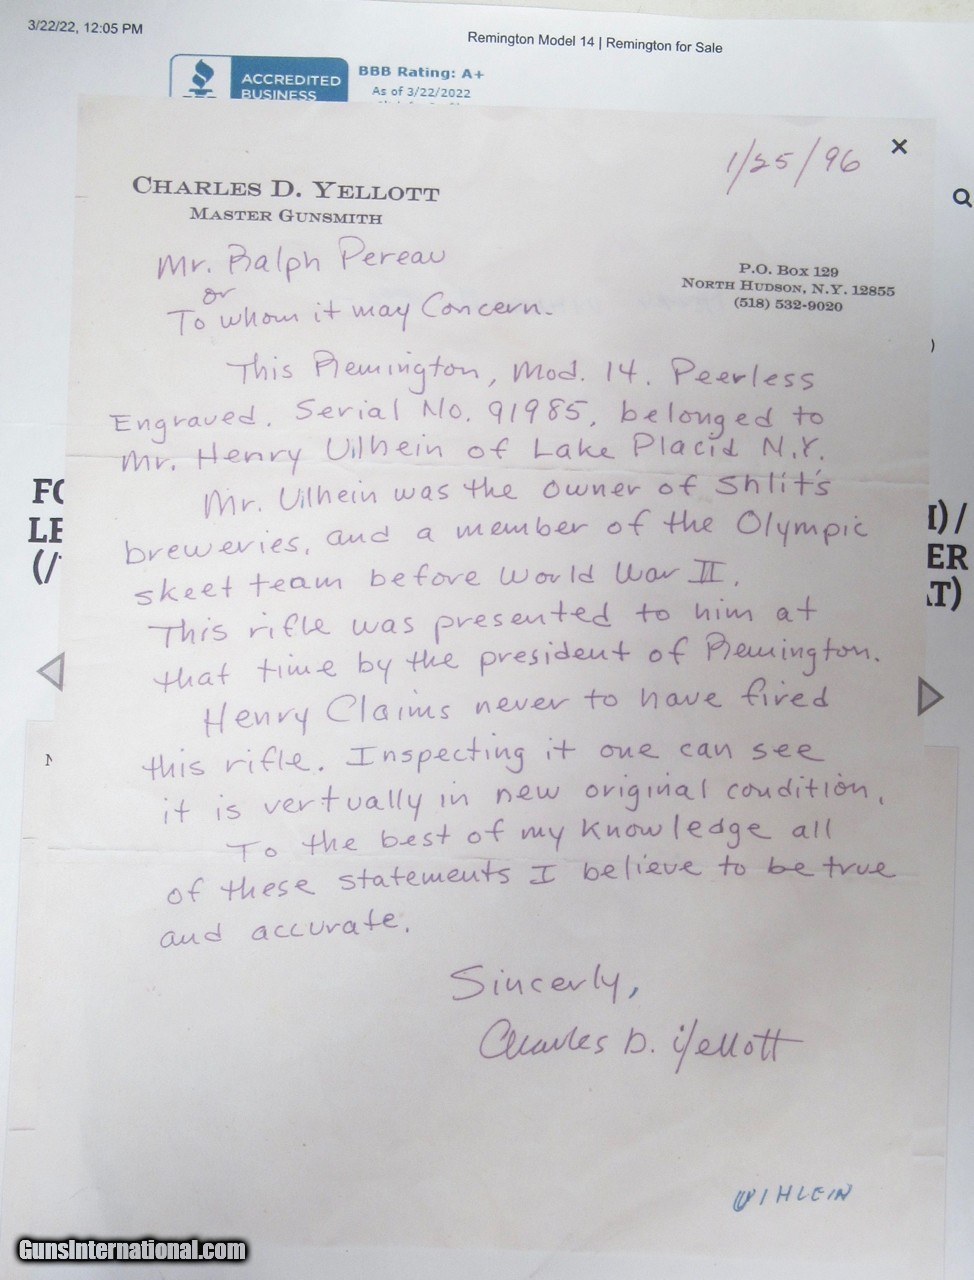 3/22/22, 12:05 PM
Remington Model 14 | Remington for Sale
ACCREDITED
BUSINESS
BBB Rating: A+
As of 3/22/2022
1/25/96
×
CHARLES D. YELLOTT
MASTER GUNSMITH
P.O. BOX 129
NORTH HUDSON, N.Y. 12855
(518) 532-9020
Mr. Ralph Pereau
or
To whom it may Concern.
This Remington, Mod. 14. Peerless
Engraved. Serial No. 91985, belonged to
Mr. Henry Uilhein of Lake Placid N.Y.
Mr. Uilhein was the owner of Shlit's
breweries, and a member of the Olympic
skeet team before World War II.
This rifle was presented to him at
that time by the president of Remington.
Henry Claims never to have fired
this rifle. Inspecting it one can see
it is vertually in new original condition.
To the best of my knowledge all
of these statements I believe to be true
and accurate.
Sincerly,
Charles D. Yellott
UIHLEIN
FO
LE
(/
I)/
ER
T)
GunsInternational.com